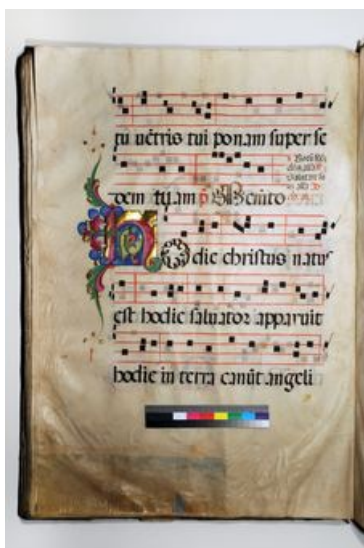 tū uētris tui ponam super se
dem tuam p̄ Memto
Hodie christus natus
est hodie saluator apparuit
hodie in terra canūt angeli